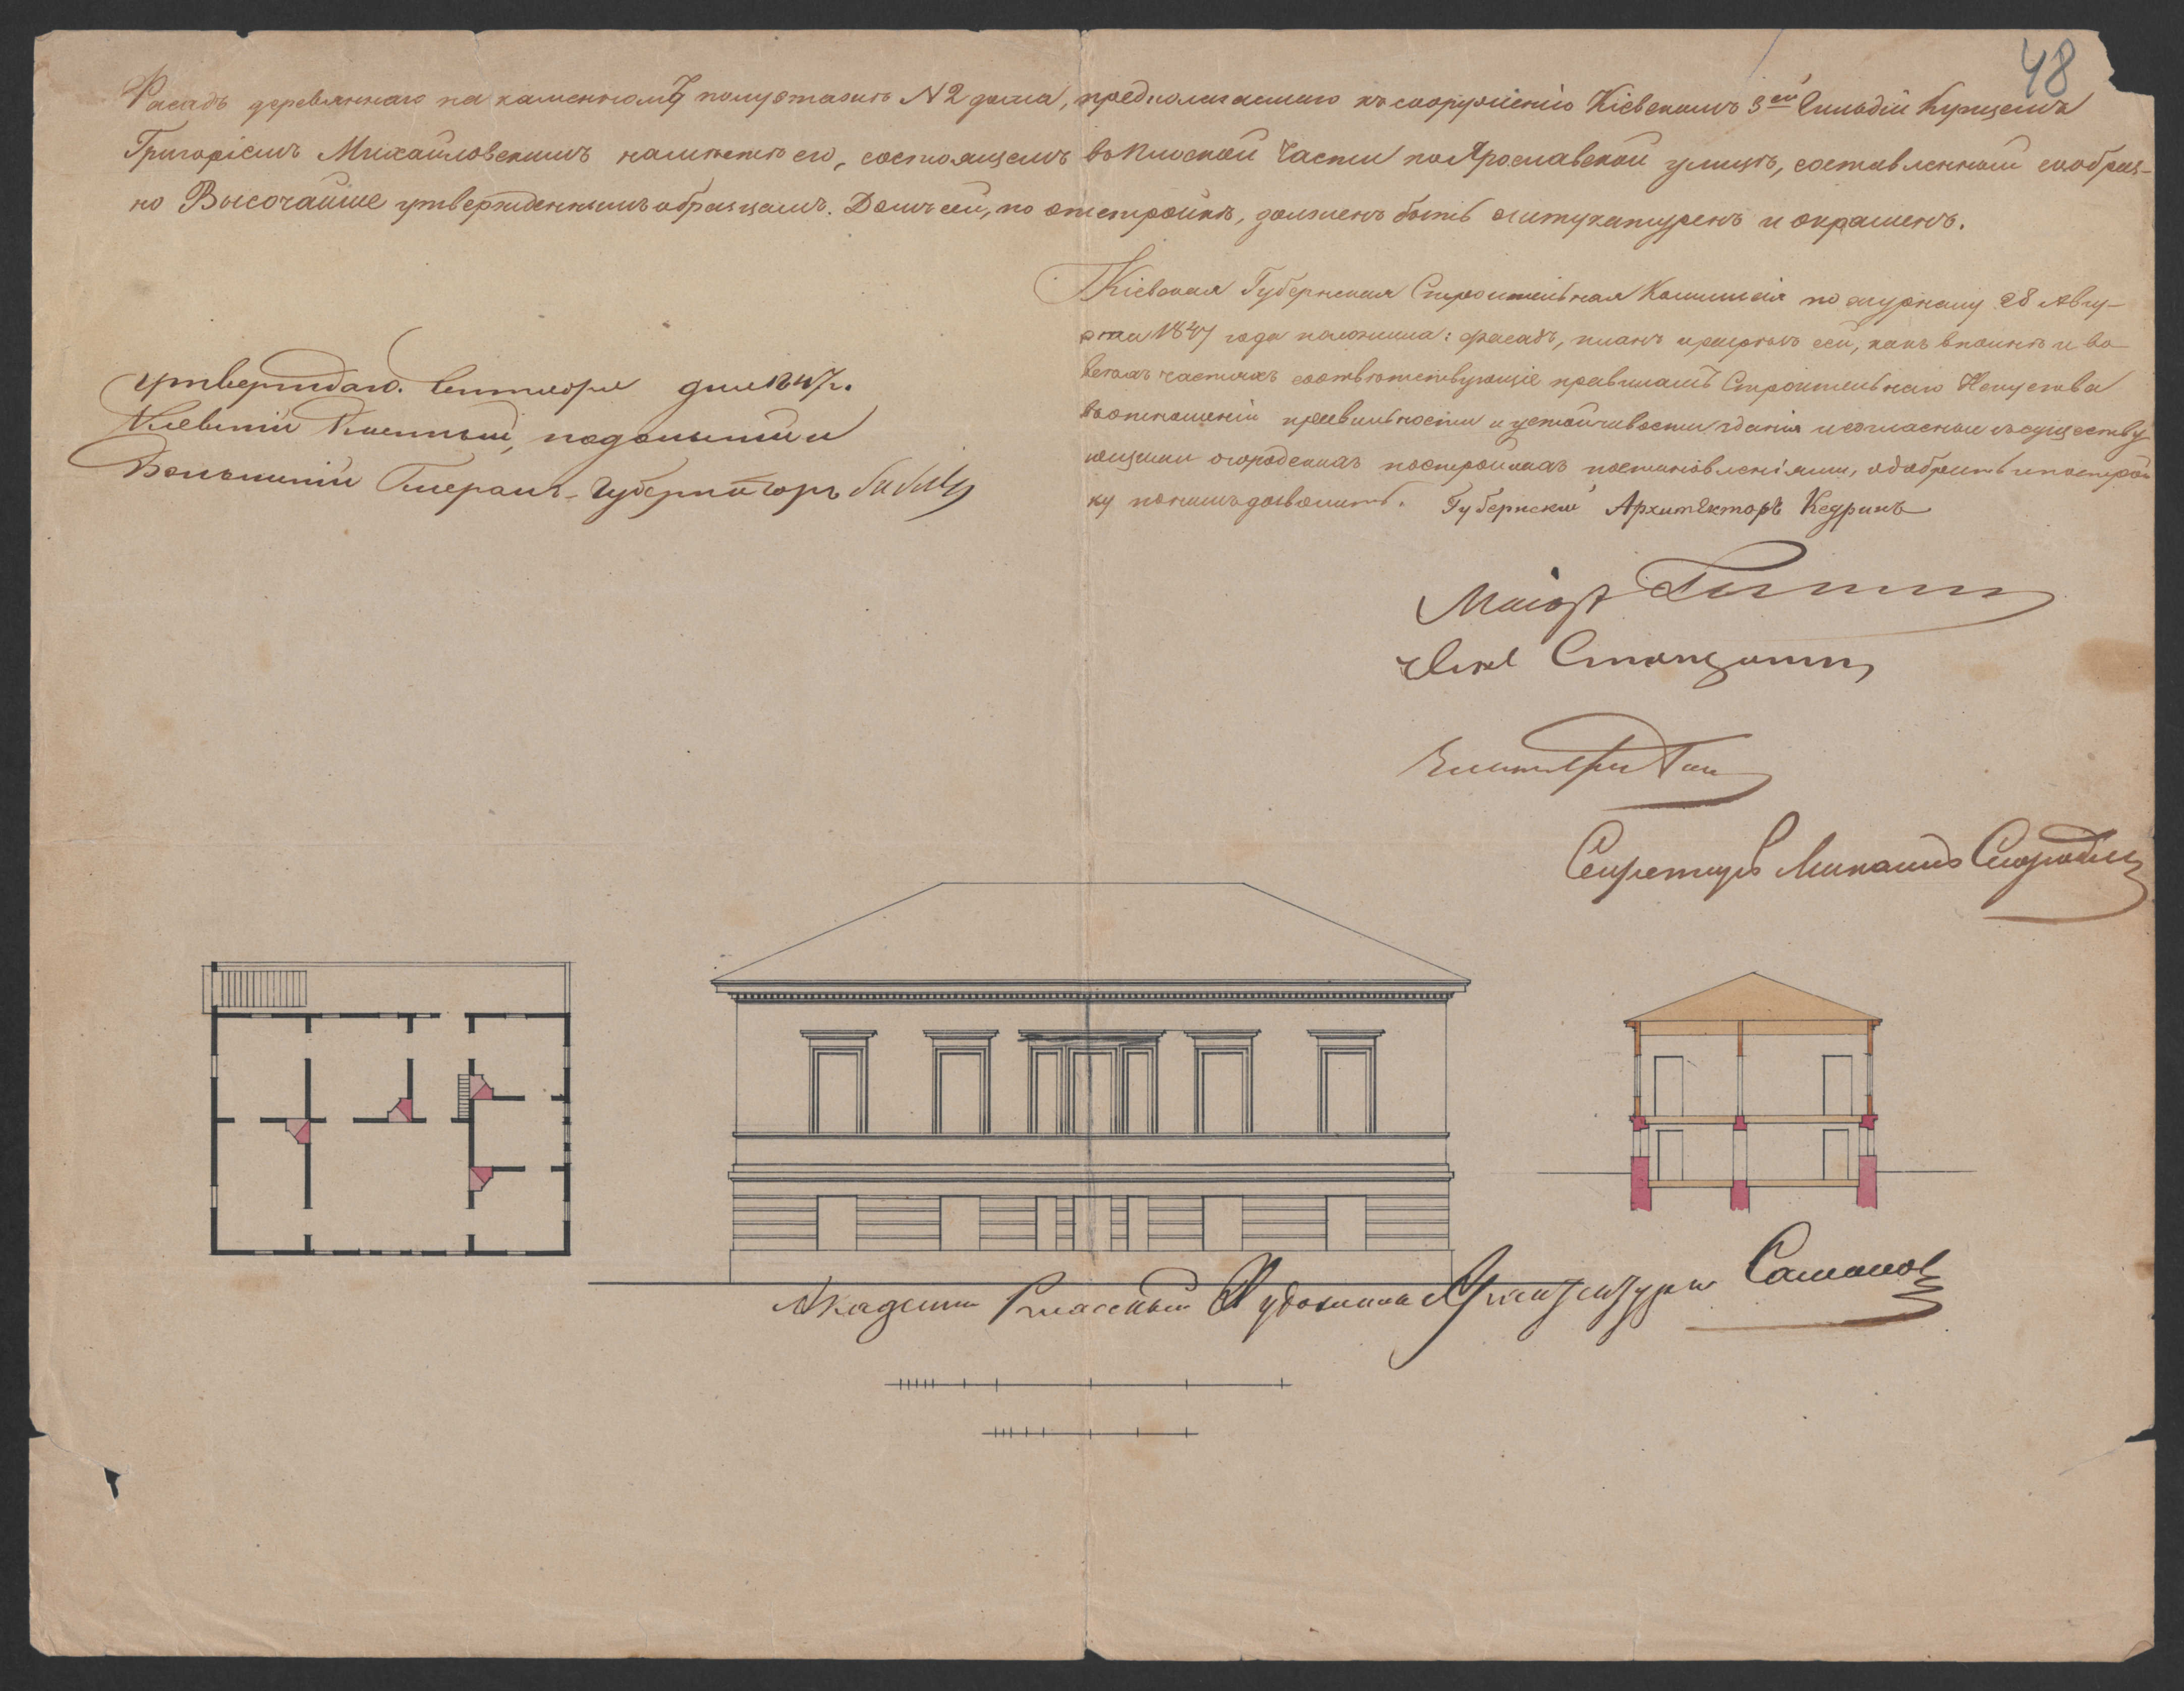 48
Фасадъ деревяннаго на каменномъ полуэтажѣ N 2 дома, предполагаемаго къ сооруженію Кіевскимъ 3ей Гильдіи Купцемъ
Григоріемъ Михайловскимъ на мѣстѣ его, состоящемъ въ Плоской Части по Ярославской улицѣ, составленный сообраз-
но Высочайше утвержденнымъ образцамъ. Домъ сей, по отстройкѣ, долженъ быть оштукатуренъ и окрашенъ.
Кіевская Губернская Строительная Коммисія по журналу 28 Авгу-
ста 1847 года положила: фасадъ, планъ и профиль сей, какъ вполнѣ и во
всѣхъ частяхъ соотвѣтствующіе правиламъ Строительнаго Искуства
въ отношеніи правильности и устойчивости зданія и согласные съ существу
ющими о городскихъ постройкахъ постановленіями, одобрить и построй
ку по нимъ дозволить. Губернскій Архитекторъ Кедринъ
Утверждаю. Сентября дня 1847 г.
Кіевскій Военный, Подольскій и
Волынскій Генералъ-Губернаторъ Бибиковъ
Маіоръ
Секретарь Михаилъ
Академіи Классный Художникъ Архитектуры